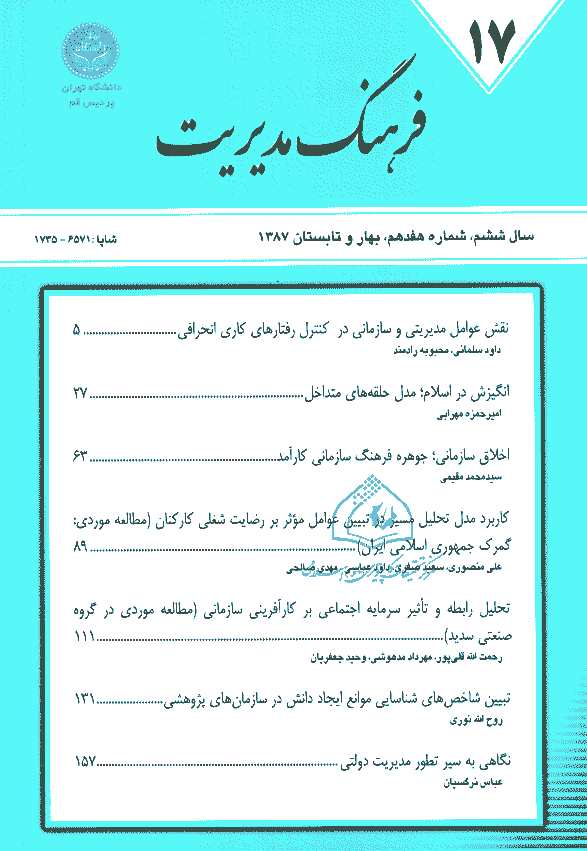 ۱۷
دانشگاه تهران
پردیس قم
فرهنگ مدیریت
سال ششم، شماره هفدهم، بهار و تابستان ۱۳۸۷
شاپا: ۶۵۷۱ - ۱۷۳۵
نقش عوامل مدیریتی و سازمانی در کنترل رفتارهای کاری انحرافی ..... ۵
داود سلمانی، محبوبه رادمند
انگیزش در اسلام؛ مدل حلقه‌های متداخل ..... ۲۷
امیرحمزه مهرابی
اخلاق سازمانی؛ جوهره فرهنگ سازمانی کارآمد ..... ۶۳
سیدمحمد مقیمی
کاربرد مدل تحلیل مسیر در تبیین عوامل مؤثر بر رضایت شغلی کارکنان (مطالعه موردی:
گمرک جمهوری اسلامی ایران) ..... ۸۹
علی منصوری، سعید صفری، داود عباسی، مهدی صالحی
تحلیل رابطه و تأثیر سرمایه اجتماعی بر کارآفرینی سازمانی (مطالعه موردی در گروه
صنعتی سدید) ..... ۱۱۱
رحمت الله قلی‌پور، مهرداد مدهوشی، وحید جعفریان
تبیین شاخص‌های شناسایی موانع ایجاد دانش در سازمان‌های پژوهشی ..... ۱۳۱
روح الله نوری
نگاهی به سیر تطور مدیریت دولتی ..... ۱۵۷
عباس نرگسیان